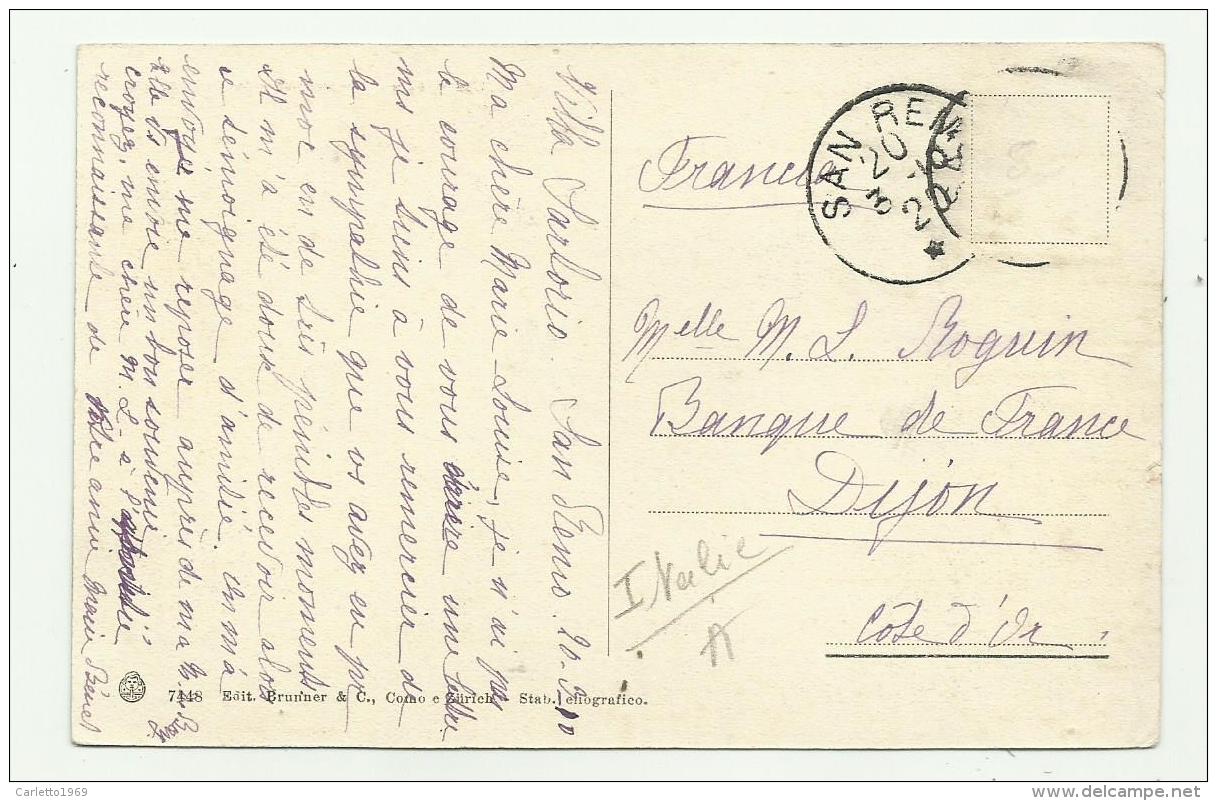 Villa Sartorio. San Remo. 20.3.10
Ma chère Marie Louise, je n'ai pas
le courage de vous écrire une lettre
ms je tiens à vous remercier de
la sympathie que vs avez eu pr
moi en de très pénibles moments
Il m'a été doux de recevoir alors
ce témoignage d'amitié. On m'a
envoyée me reposer auprès de ma
Elle vs envoie un bon souvenir
croyez, ma chère M. L- à l'
reconnaissante de votre amie Marie
Francia
SAN REMO
20
3
Melle M. L. Roguin
Banque de France
Dijon
Côte d'Or
Italie
A
7448 Edit. Brunner & C., Como e Zürich Stab. eliografico.
Carletto1969
www.delcampe.net